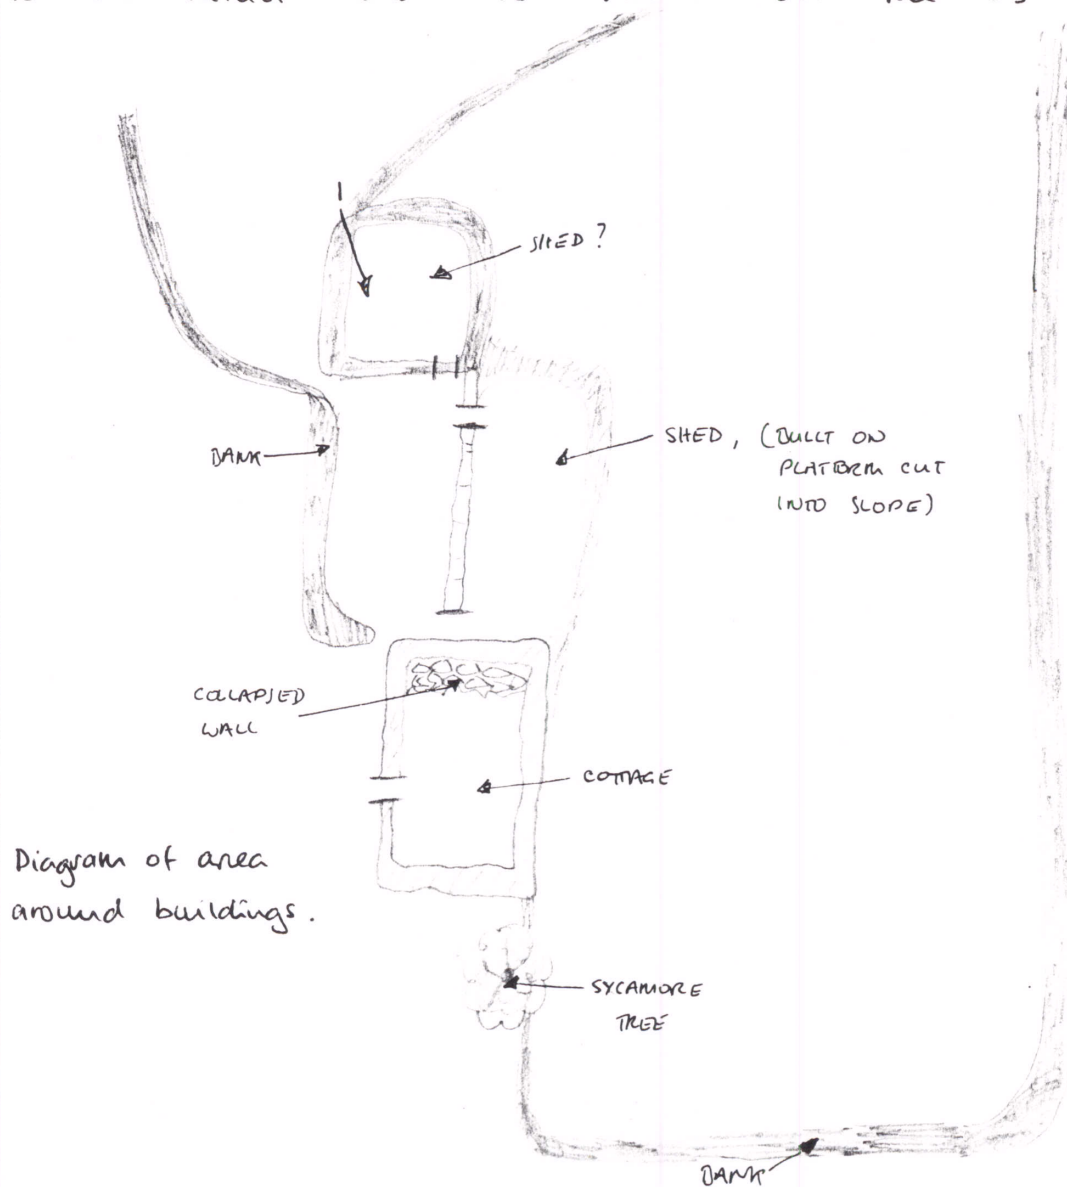 SHED?
BANK
SHED, (BUILT ON
PLATFORM CUT
INTO SLOPE)
COLLAPSED
WALL
COTTAGE
Diagram of area
around buildings.
SYCAMORE
TREE
BANK